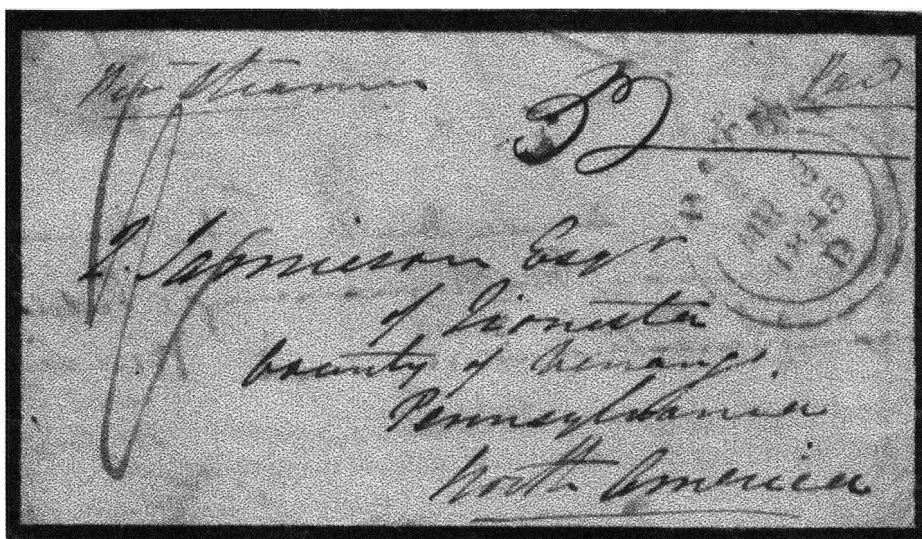 Per Steamer
Paid
Esqr
of Tionesta
County of Venango.
Pennsylvania
North America
1848